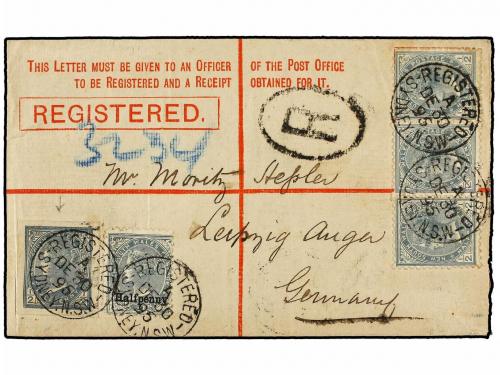 THIS LETTER MUST BE GIVEN TO AN OFFICER
TO BE REGISTERED AND A RECEIPT
OF THE POST OFFICE
OBTAINED FOR IT.
REGISTERED.
R
3234
Mr. Moritz Hessler
Leipzig Anger
Germany
REGISTERED
A
DE 30
95
SYDNEY, N.S.W.
REGISTERED
A
DE 30
95
SYDNEY, N.S.W.
REGISTERED
DE 30
SYDNEY, N.S.W.
REGISTERED
DE 30
95
SYDNEY, N.S.W.
POSTAGE
Halfpenny